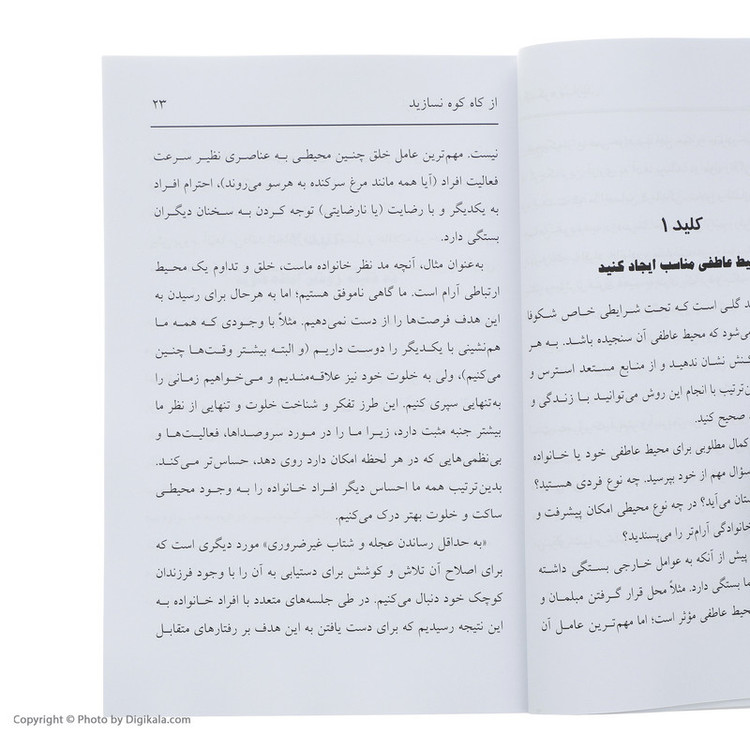 کلید ۱
عاطفی مناسب ایجاد کنید
گلی است که تحت شرایطی خاص شکوفا
می‌شود که محیط عاطفی آن سنجیده باشد. به هر
نشان ندهید و از منابع مستعد استرس و
ترتیب با انجام این روش می‌توانید با زندگی و
صحیح کنید.
کمال مطلوبی برای محیط عاطفی خود یا خانواده
سؤال مهم از خود بپرسید. چه نوع فردی هستید؟
می‌آید؟ در چه نوع محیطی امکان پیشرفت و
خانوادگی آرام‌تر را می‌پسندید؟
پیش از آنکه به عوامل خارجی بستگی داشته
بستگی دارد. مثلاً محل قرار گرفتن مبلمان و
محیط عاطفی مؤثر است؛ اما مهم‌ترین عامل آن
از کاه کوه نسازید ۲۳
نیست. مهم‌ترین عامل خلق چنین محیطی به عناصری نظیر سرعت
فعالیت افراد (آیا همه مانند مرغ سرکنده به هرسو می‌روند)، احترام افراد
به یکدیگر و با رضایت (یا نارضایتی) توجه کردن به سخنان دیگران
بستگی دارد.
به‌عنوان مثال، آنچه مد نظر خانواده ماست، خلق و تداوم یک محیط
ارتباطی آرام است. ما گاهی ناموفق هستیم؛ اما به هرحال برای رسیدن به
این هدف فرصت‌ها را از دست نمی‌دهیم. مثلاً با وجودی که همه ما
هم‌نشینی با یکدیگر را دوست داریم (و البته بیشتر وقت‌ها چنین
می‌کنیم)، ولی به خلوت خود نیز علاقه‌مندیم و می‌خواهیم زمانی را
به‌تنهایی سپری کنیم. این طرز تفکر و شناخت خلوت و تنهایی از نظر ما
بیشتر جنبه مثبت دارد، زیرا ما را در مورد سروصداها، فعالیت‌ها و
بی‌نظمی‌هایی که در هر لحظه امکان دارد روی دهد، حساس‌تر می‌کند.
بدین‌ترتیب همه ما احساس دیگر افراد خانواده را به وجود محیطی
ساکت و خلوت بهتر درک می‌کنیم.
«به حداقل رساندن عجله و شتاب غیرضروری» مورد دیگری است که
برای اصلاح آن تلاش و کوشش برای دستیابی به آن را با وجود فرزندان
کوچک خود دنبال می‌کنیم. در طی جلسه‌های متعدد با افراد خانواده به
این نتیجه رسیدیم که برای دست یافتن به این هدف بر رفتارهای متقابل
Copyright © Photo by Digikala.com